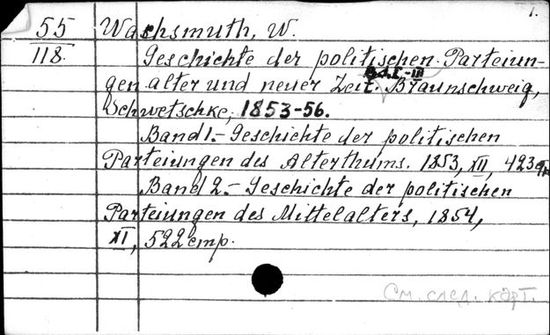 1.
55 Wachsmuth, W.
118. Geschichte der politischen Parteiun-
gen alter und neuer Zeit. Bd. I-III Braunschweig,
Schwetschke, 1853-56.
Band 1.- Geschichte der politischen
Parteiungen des Alterthums. 1853, XII, 423 стр
Band 2.- Geschichte der politischen
Parteiungen des Mittelalters, 1854,
XI, 522 стр.
См. след. карт.